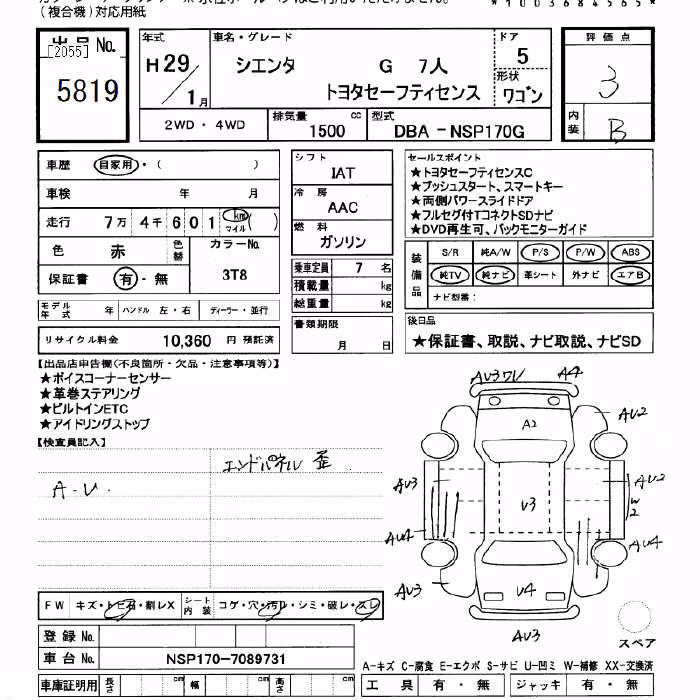 (複合機)対応用紙
*1003684565*
出品 No.
[2055]
5819
年式
H29/1月
車名・グレード
シエンタ G 7人
トヨタセーフティセンス
ドア
5
形状
ワゴン
評価点
3
内装
B
2WD・4WD
排気量 1500 cc
型式 DBA-NSP170G
車歴 自家用・( )
車検 年 月
走行 7万4千601 km マイル ( )
色 赤
色替
カラーNo.
3T8
保証書 有・無
シフト
IAT
冷房
AAC
燃料
ガソリン
乗車定員 7 名
積載量 kg
総重量 kg
書類期限
月 日
セールスポイント
★トヨタセーフティセンスC
★プッシュスタート、スマートキー
★両側パワースライドドア
★フルセグ付TコネクトSDナビ
★DVD再生可、バックモニターガイド
装備品
S/R 純A/W P/S P/W ABS
純TV 純ナビ 革シート 外ナビ エアB
ナビ型番:
モデル年式 年 ハンドル 左・右 ディーラー・並行
リサイクル料金 10,360 円 預託済
後日品
★保証書、取説、ナビ取説、ナビSD
【出品店申告欄(不良箇所・欠品・注意事項等)】
★ボイスコーナーセンサー
★革巻ステアリング
★ビルトインETC
★アイドリングストップ
【検査員記入】
エンドパネル 歪
A-U.
AU3ワレ A4
AU2
A2
AU3
AU2
W2
U3
AU4
AU4
AU3
U4
AU3
スペア
FW キズ・トビ石・割レX
シート内装 コゲ・穴・汚レ・シミ・破レ・スレ
登録 No.
車台 No. NSP170-7089731
A-キズ C-腐食 E-エクボ S-サビ U-凹ミ W-補修 XX-交換済
車庫証明用 長さ cm 幅 cm 高さ cm
工具 有・無 ジャッキ 有・無